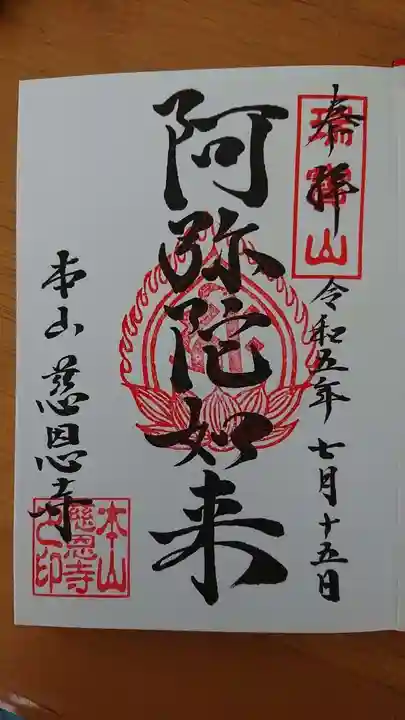 奉拝
瑞宝山
令和五年七月十五日
阿弥陀如来
本山慈恩寺
本山
慈恩寺
之印